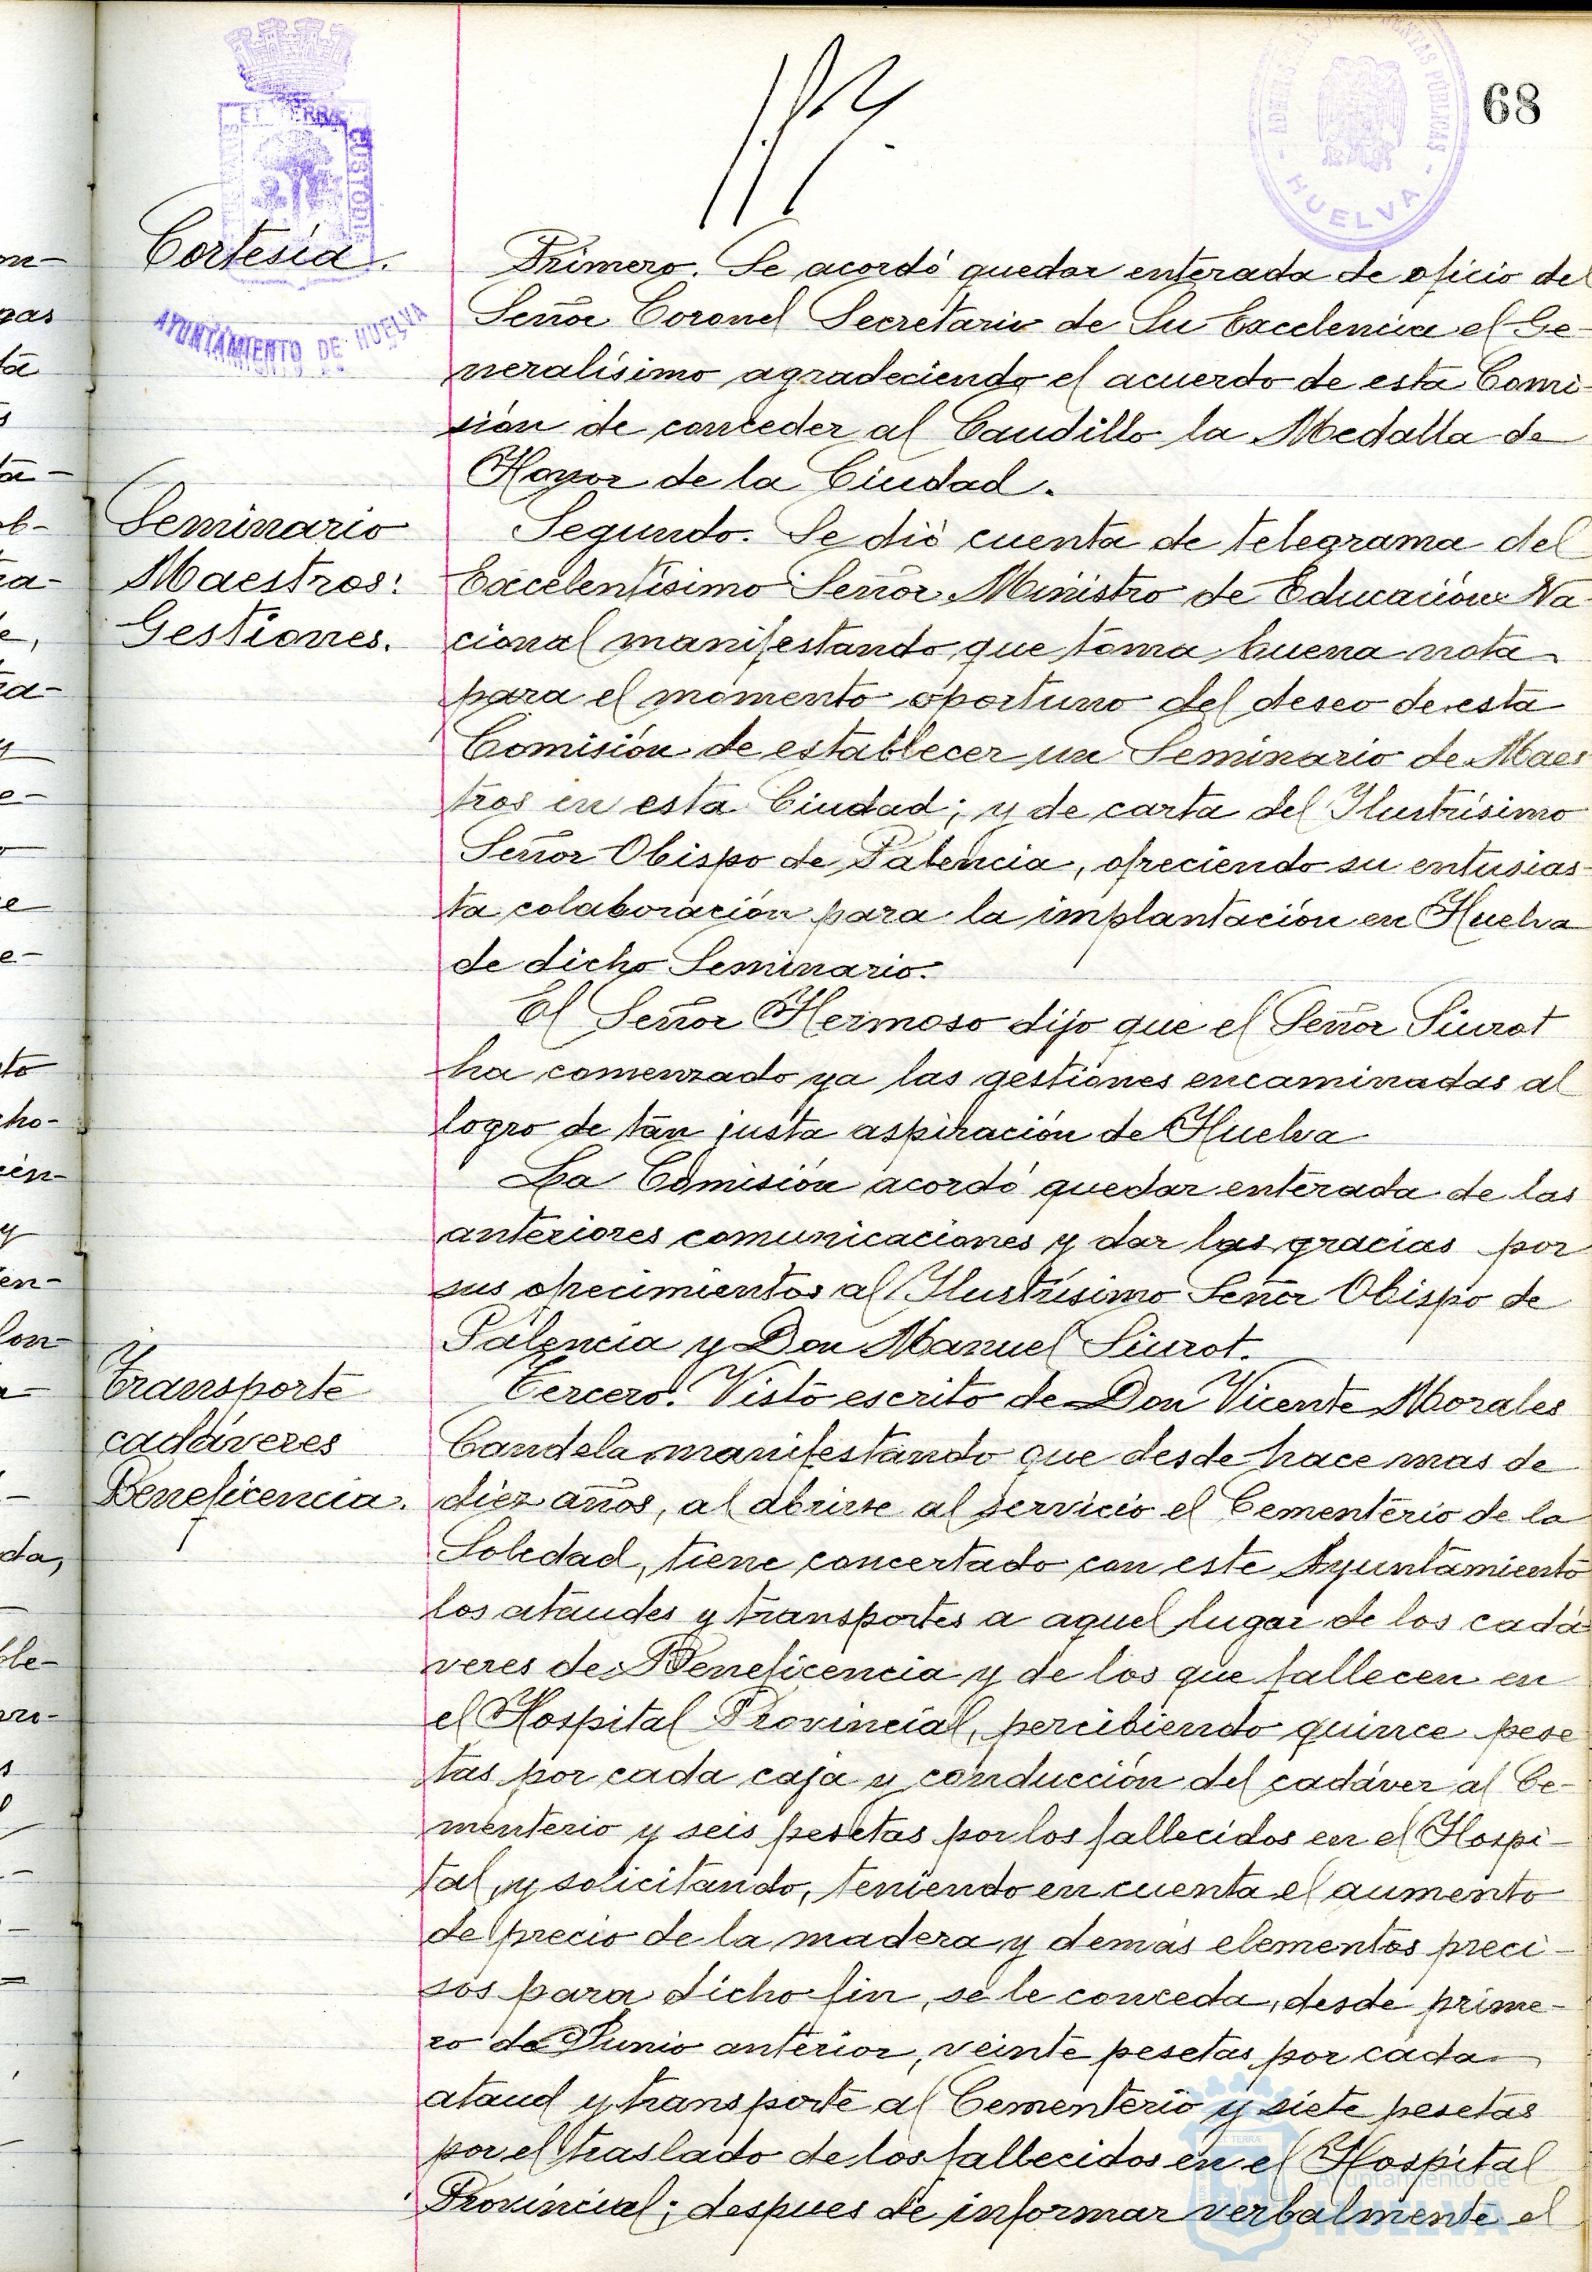 68
HUELVA
AYUNTAMIENTO DE HUELVA
Cortesía.
Primero. Se acordó quedar enterada de oficio del
Señor Coronel Secretario de Su Excelencia el Ge-
neralísimo agradeciendo el acuerdo de esta Comi-
sión de conceder al Caudillo la Medalla de
Honor de la Ciudad.
Seminario
Maestros:
Gestiones.
Segundo. Se dió cuenta de telegrama del
Excelentísimo Señor Ministro de Educación Na-
cional manifestando que toma buena nota
para el momento oportuno del deseo de esta
Comisión de establecer un Seminario de Maes
tros en esta Ciudad; y de carta del Ilustrísimo
Señor Obispo de Palencia, ofreciendo su entusias-
ta colaboración para la implantación en Huelva
de dicho Seminario.
El Señor Hermoso dijo que el Señor Siurot
ha comenzado ya las gestiones encaminadas al
logro de tan justa aspiración de Huelva
La Comisión acordó quedar enterada de las
anteriores comunicaciones y dar las gracias por
sus ofrecimientos al Ilustrísimo Señor Obispo de
Palencia y Don Manuel Siurot.
Transporte
cadáveres
Beneficencia.
Tercero. Visto escrito de Don Vicente Morales
Candela manifestando que desde hace mas de
diez años, al abrirse al servicio el Cementerio de la
Soledad, tiene concertado con este Ayuntamiento
los ataudes y transportes a aquel lugar de los cadá
veres de Beneficencia y de los que fallecen en
el Hospital Provincial, percibiendo quince pese
tas por cada caja y conducción del cadáver al Ce-
menterio y seis pesetas por los fallecidos en el Hospi-
tal, y solicitando, teniendo en cuenta el aumento
de precio de la madera y demás elementos preci-
sos para dicho fin, se le conceda, desde prime-
ro de Junio anterior, veinte pesetas por cada
ataud y transporte al Cementerio y siete pesetas
por el traslado de los fallecidos en el Hospital
Provincial; despues de informar verbalmente el
Ayuntamiento de
HUELVA